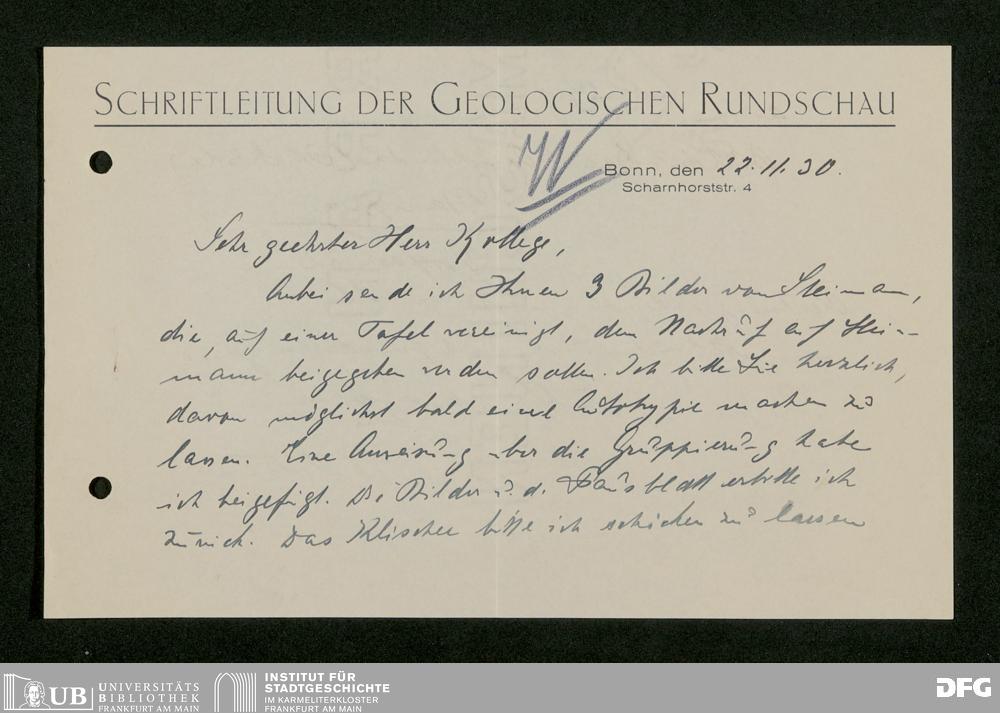 SCHRIFTLEITUNG DER GEOLOGISCHEN RUNDSCHAU
Bonn, den 22.11.30.
Scharnhorststr. 4
Sehr geehrter Herr Kollege,
Anbei sende ich Ihnen 3 Bilder von Steimann,
die, auf einer Tafel vereinigt, dem Nachruf auf Stein-
mann beigegeben werden sollen. Ich bitte Sie herzlich,
davon möglichst bald eine Autotypie machen zu
lassen. Eine Anweisung über die Gruppierung habe
ich beigefügt. Die Bilder u. d. Pausblatt erbitte ich
zurück. Das Klischee bitte ich schicken zu lassen
UB UNIVERSITÄTS
BIBLIOTHEK
FRANKFURT AM MAIN
INSTITUT FÜR
STADTGESCHICHTE
IM KARMELITERKLOSTER
FRANKFURT AM MAIN
DFG